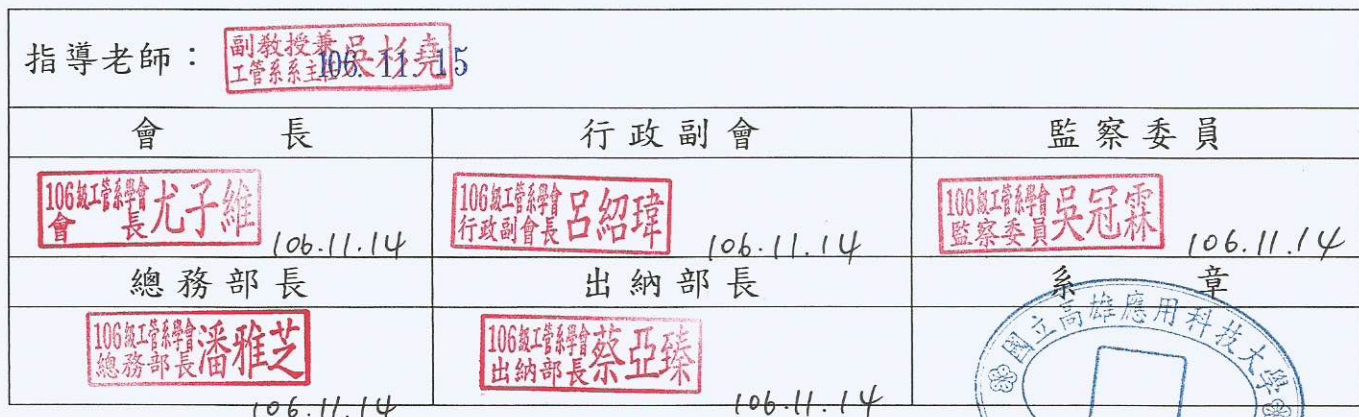 指導老師：
副教授兼
工管系系主任
吳杉堯
106. 11. 15
會 長
行政副會
監察委員
106級工管系學會
會 長
尤子維
106.11.14
106級工管系學會
行政副會長
呂紹瑋
106.11.14
106級工管系學會
監察委員
吳冠霖
106.11.14
總務部長
出納部長
系 章
106級工管系學會
總務部長
潘雅芝
106.11.14
106級工管系學會
出納部長
蔡亞臻
106.11.14
國立高雄應用科技大學